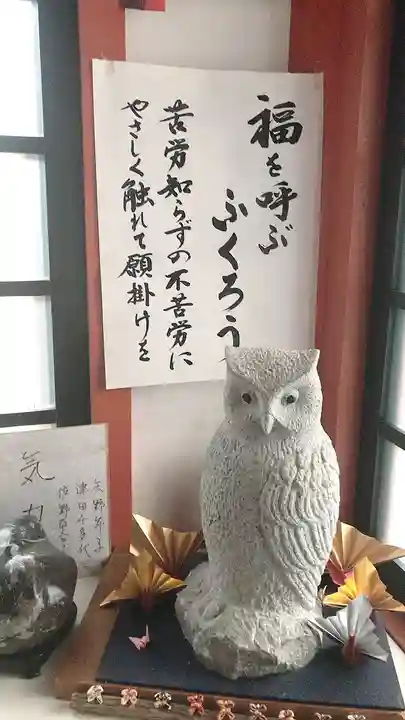 福を呼ぶ
ふくろう
苦労知らずの不苦労に
やさしく触れて願掛けを
気